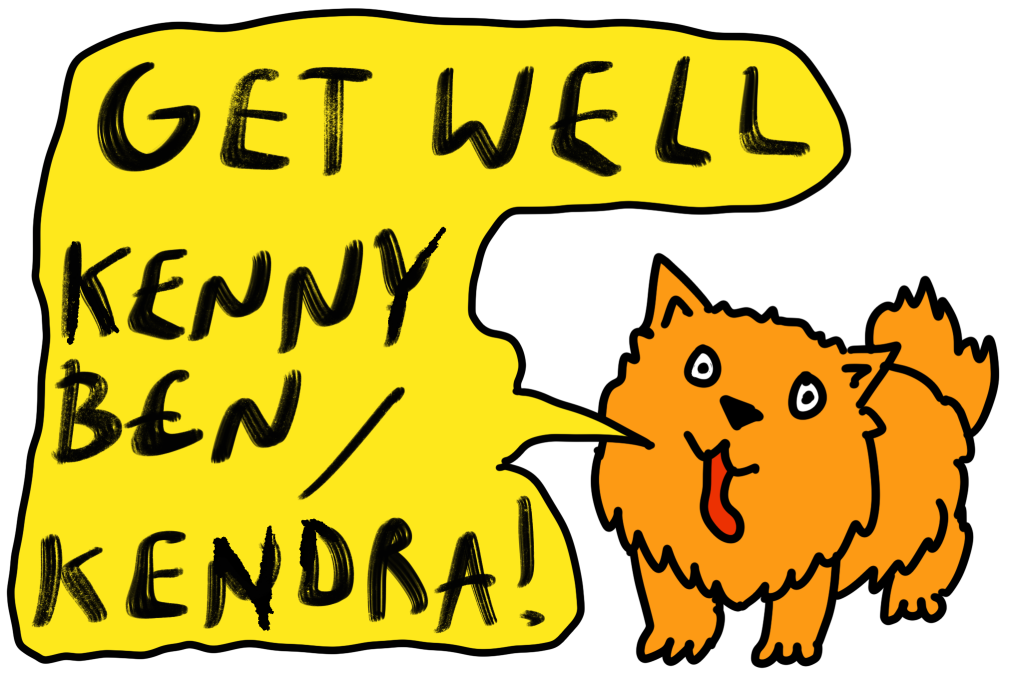 GET WELL
KENNY
BEN /
KENDRA!